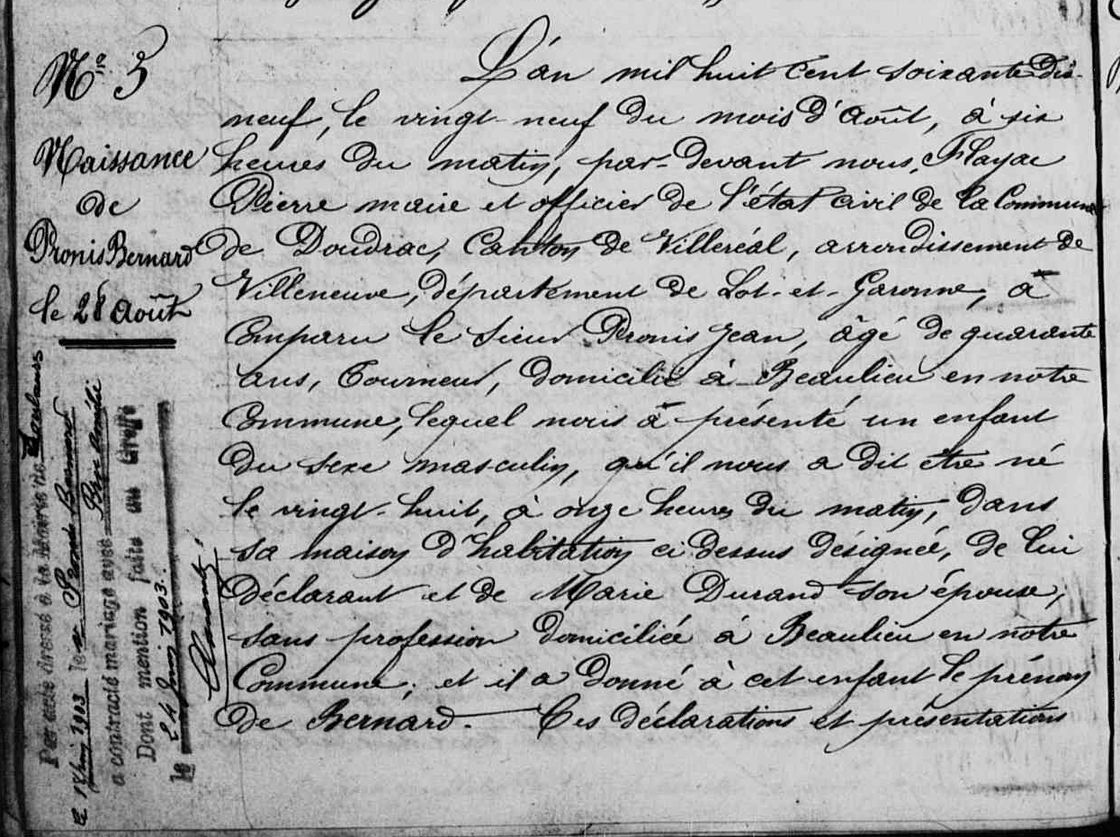 N.º 5
Naissance
de
Pronis Bernard
le 28 Août
L'an mil huit cent soixante-dix-
neuf, le vingt-neuf du mois d'Août, à six
heures du matin, par-devant nous, Flayac
Pierre maire et officier de l'état civil de la Commune
de Doudrac, Canton de Villeréal, arrondissement de
Villeneuve, département de Lot-et-Garonne, à
Comparu le sieur Pronis Jean, âgé de quarante
ans, Tourneur, domicilié à Beaulieu en notre
Commune, lequel nous à présenté un enfant
du sexe masculin, qu'il nous a dit être né
le vingt-huit, à onze heures du matin, dans
sa maison d'habitation ci dessus désignée, de lui
déclarant et de Marie Durand son épouse,
sans profession domiciliée à Beaulieu en notre
Commune; et il a donné à cet enfant le prénom
de Bernard. — Ces déclarations et présentations
Par acte dressé à la Mairie de
le 18 Juin 1903 le Pronis Bernard
a contracté mariage avec
Dont mention faite au Greffe
24 Juin 1903.
le